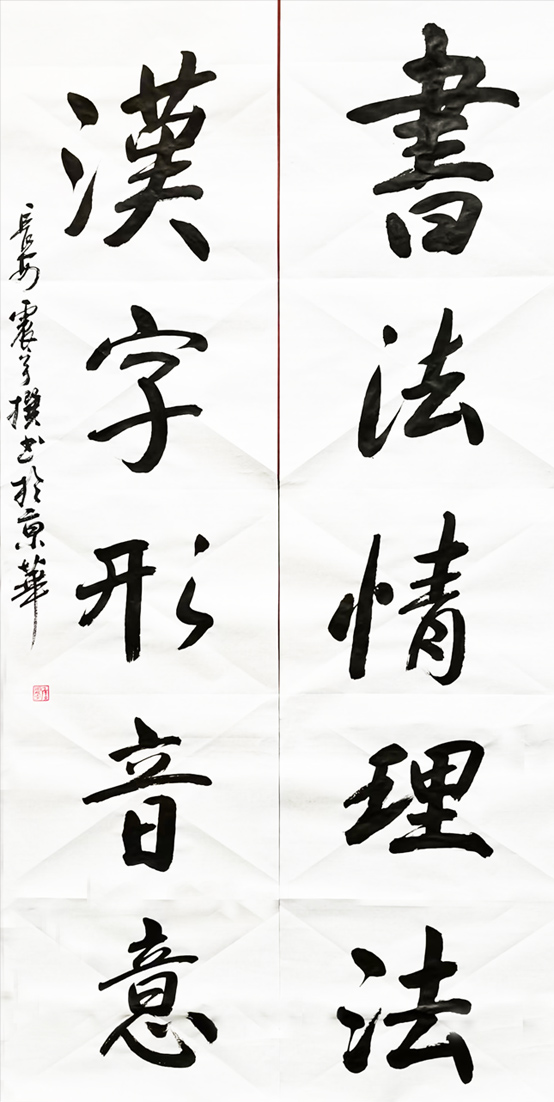 書法情理法
漢字形音意
長安震軍撰书於京華